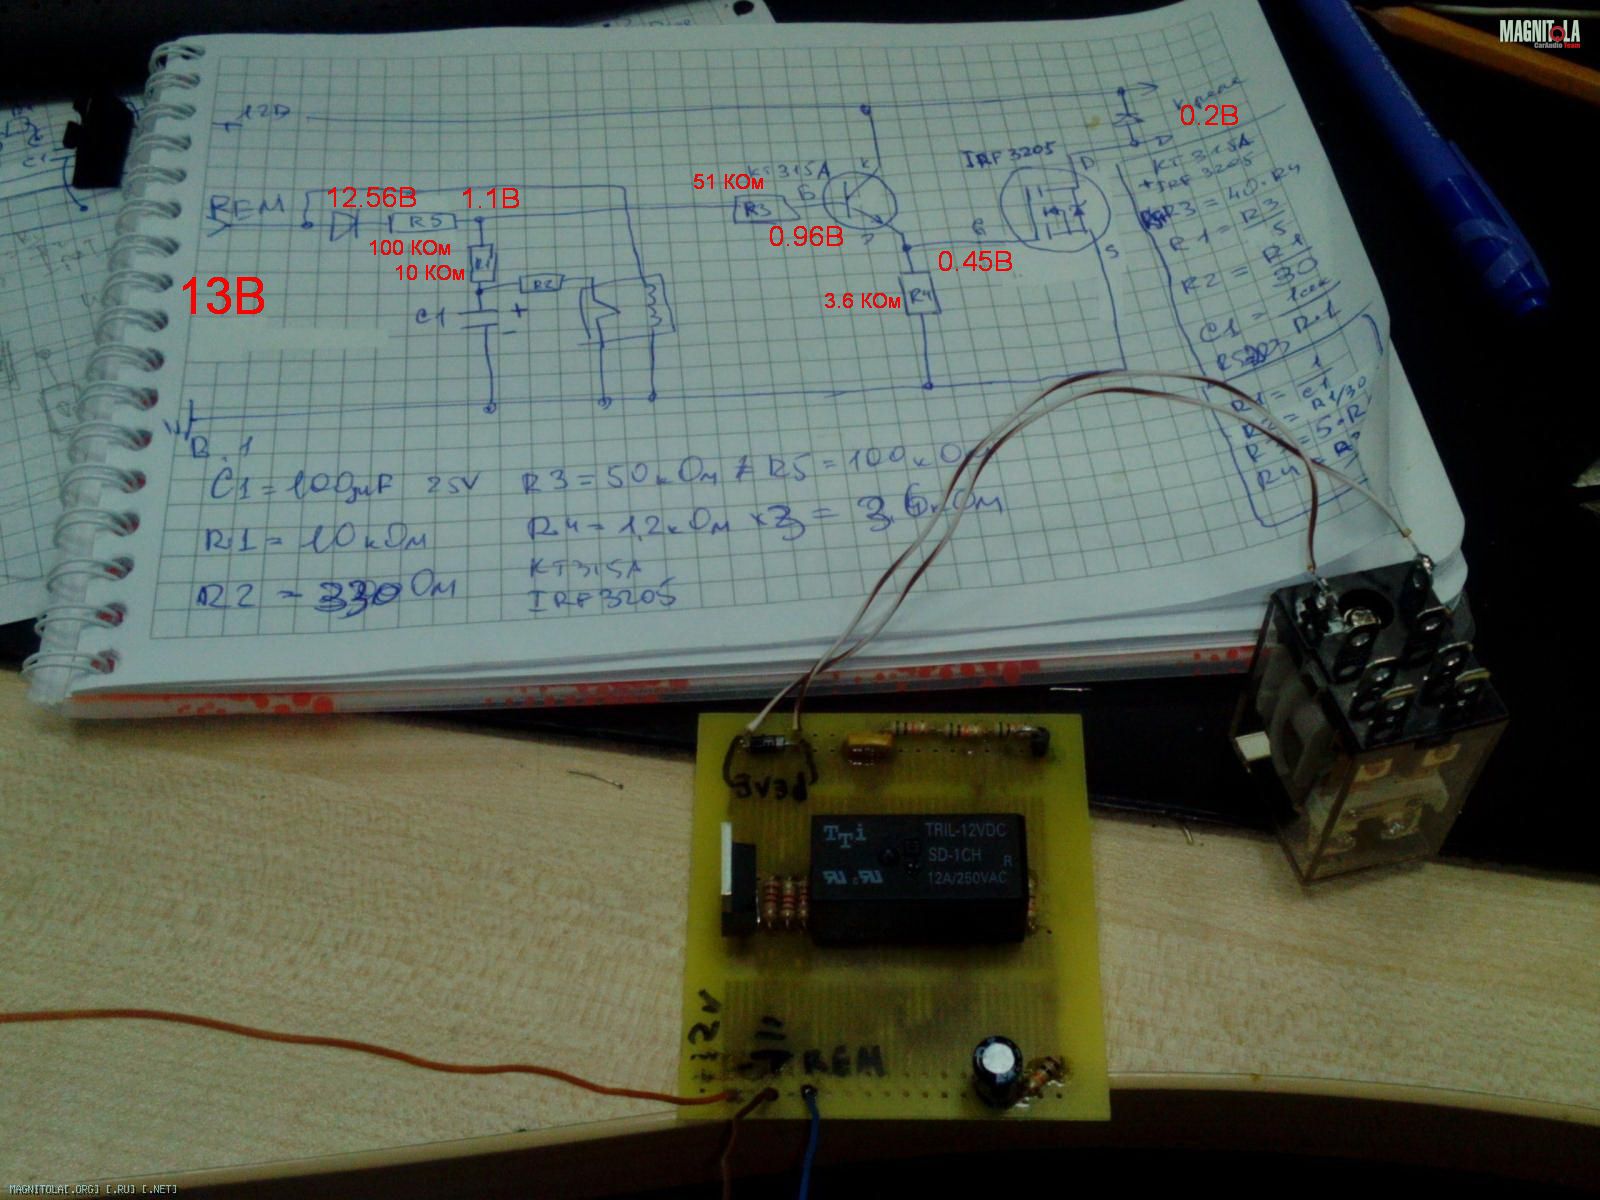 MAGNITOLA
CarAudio Team
+12В
REM
12.56В
1.1В
51 КОм
КТ315А
IRF3205
0.2В
R5
100 КОм
10 КОм
R1
R2
C1
+
-
13В
R3
Б
К
Э
0.96В
0.45В
3.6 КОм
R4
G
D
S
КТ315А
IRF3205
R3 = 40·R4
R1 = R3/5
R2 = R1/30
C1 = 1сек/R1
R1 = 1/C1
C1 = 100µF 25V
R3 = 50кОм
R5 = 100кОм
R1 = 10кОм
R4 = 1,2кОм x3 = 3.6кОм
R2 = 330 Ом
КТ315А
IRF3205
TTi
TRIL-12VDC
SD-1CH
R
12A/250VAC
+12V
REM
MAGNITOLA[.ORG] [.RU] [.NET]